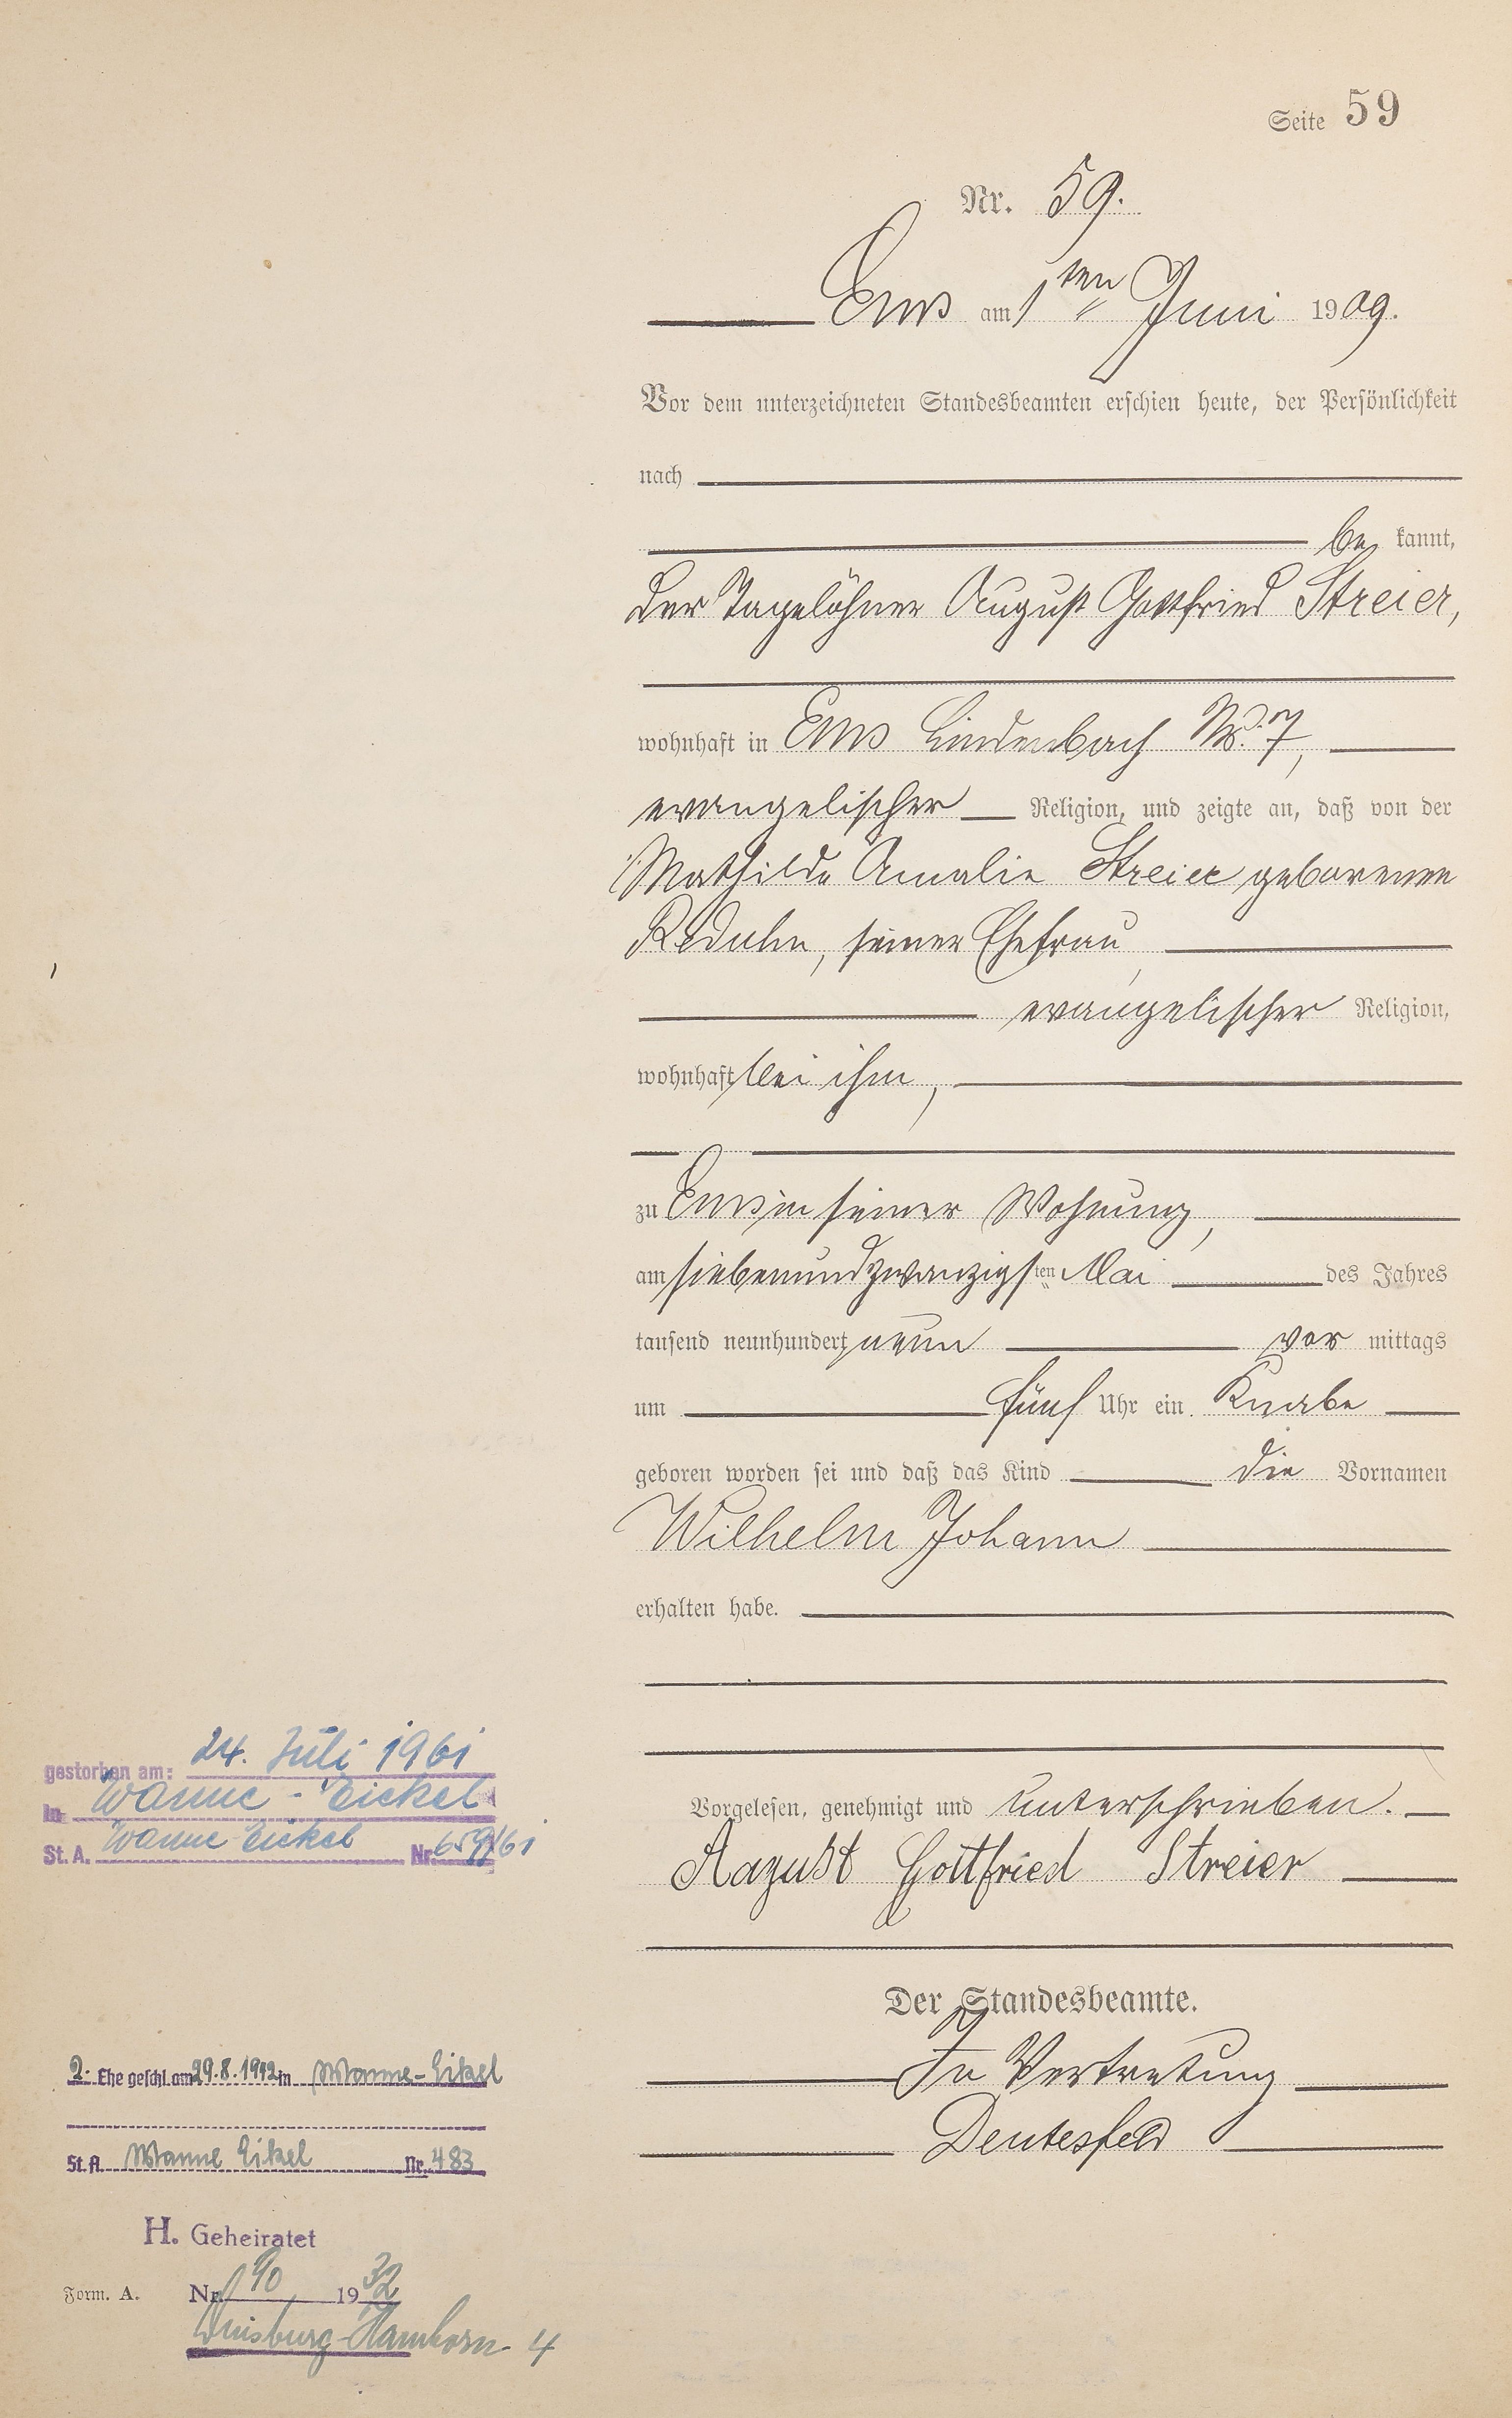 Seite 59
Nr. 59.
Ems am 1ten Juni 1909.
Vor dem unterzeichneten Standesbeamten erschien heute, der Persönlichkeit
nach
be kannt,
der Tagelöhner August Gottfried Streier,
wohnhaft in Ems Lindenbach Nr. 7,
evangelischer Religion, und zeigte an, daß von der
Mathilde Amalie Streier geborenen
Reduhn, seiner Ehefrau,
evangelischer Religion,
wohnhaft bei ihm,
zu Ems in seiner Wohnung,
am siebenundzwanzigsten Mai des Jahres
tausend neunhundert neun vor mittags
um fünf Uhr ein Knabe
geboren worden sei und daß das Kind die Vornamen
Wilhelm Johann
erhalten habe.
Vorgelesen, genehmigt und unterschrieben.
August Gottfried Streier
Der Standesbeamte.
In Vertretung
Deutesfeld
gestorben am: 24. Juli 1961
in Wanne-Eickel
St. A. Wanne-Eickel Nr. 659/61
2. Ehe geschl am 29.8.1942 in Wanne-Eikel
St. A. Wanne Eikel Nr. 483
H. Geheiratet
Form. A. Nr. 90 1932
Duisburg-Hamborn 4